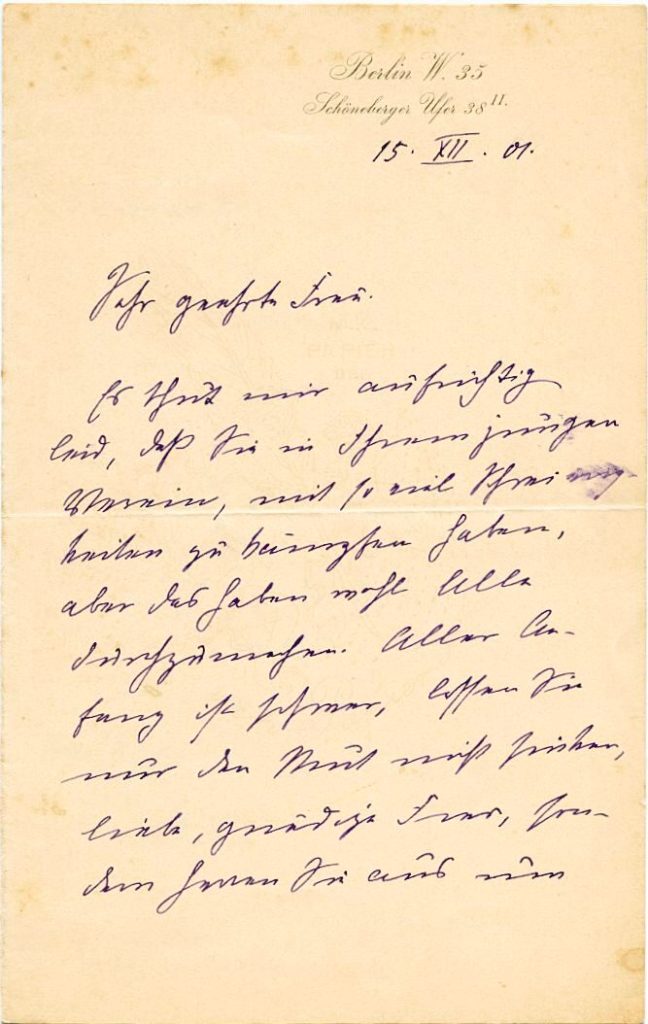 Berlin W. 35
Schöneberger Ufer 38 II.
15. XII. 01.
Sehr geehrte Frau.
Es thut mir aufrichtig
leid, daß Sie in Ihrem jungen
Verein, mit so viel
keiten zu kämpfen haben,
aber das haben wohl Alle
durchzumachen. Aller An-
fang ist schwer, lassen Sie
nur den Mut nicht sinken,
liebe, gnädige Frau, son-
dern harren Sie aus um